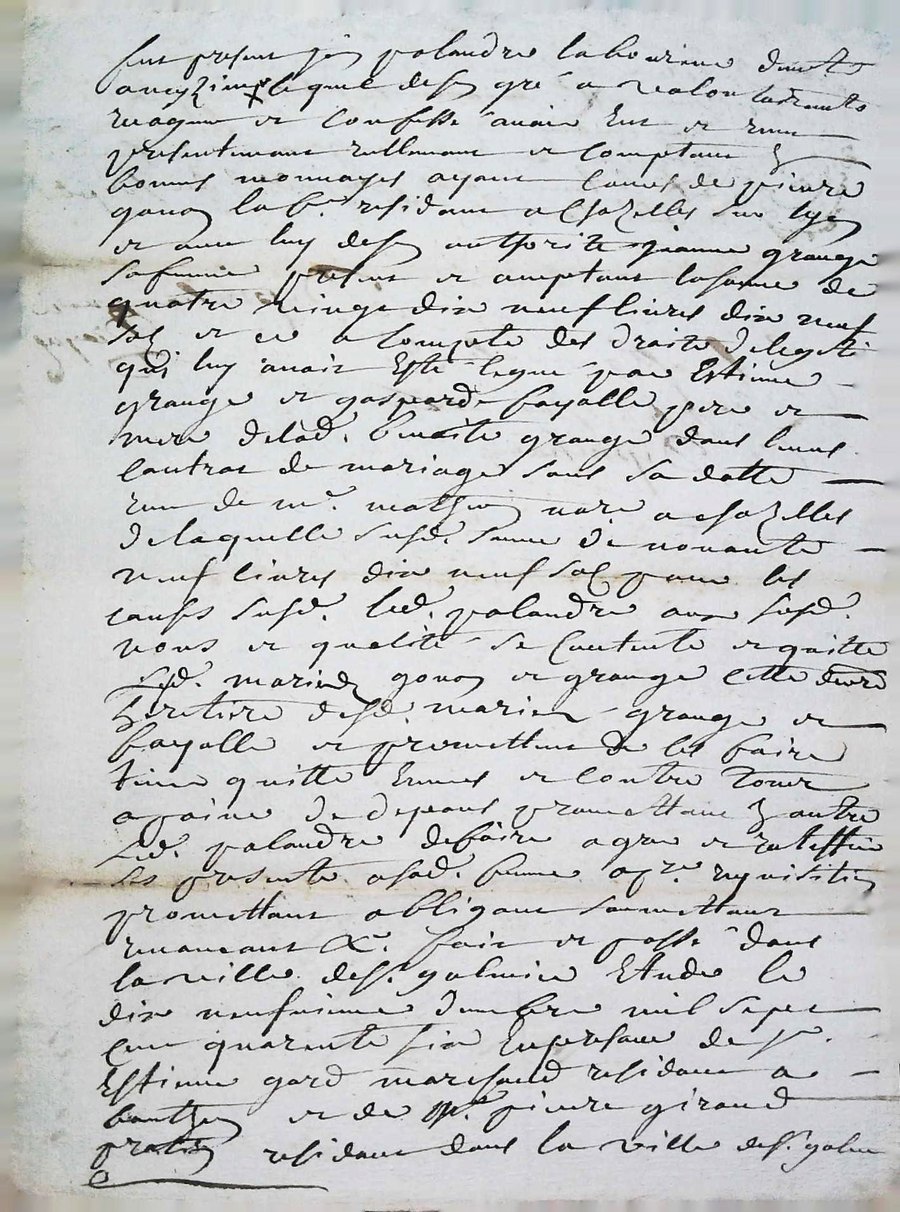 fut present jean palandre laboureur dud.
avezieu lequel de son gré a et volontairement
reconnu et confessé avoir eu et reçu
presentement reellement et comptant en
bonnes monnoyes ayant cours de pierre
gonon lab.r residant a Chazelles sur lyon
et avec luy de son authorité jeanne grange
sa femme present et acceptant la somme de
quatre vingt dix neuf livres dix neuf
sols et ce a compte des droits de legat
qui luy avait esté legué par Estienne
grange et gasparde fayolle pere et
mere de lad. benoite grange dans leurs
contrat de mariage sous sa datte
reçu de m.e mathieu no.re a chazelles
de laquelle susd. somme de nonante
neuf livres dix neuf sols pour les
causes susd. led. palandre aux susd.
noms et qualité se contente et quitte
lesd. mariez gonon et grange cette derre
heretiere desd. mariez grange et
fayolle et promettant de les faire
tenir quitte envers et contre tous
a paine de depens promettant en outre
led. palandre de faire agreer et ratiffier
les presentes a sad. femme a p.re requisition
promettant obligeant soumettant
renoncant &c. fait et passé dans
la ville de S.t galmier Etude le
dix neufvieme decembre mil sept
cent quarente six En presence de s.r
Estienne gord marchand residant a
et de m.e pierre giraud
praticien residant dans la ville de S.t galmier